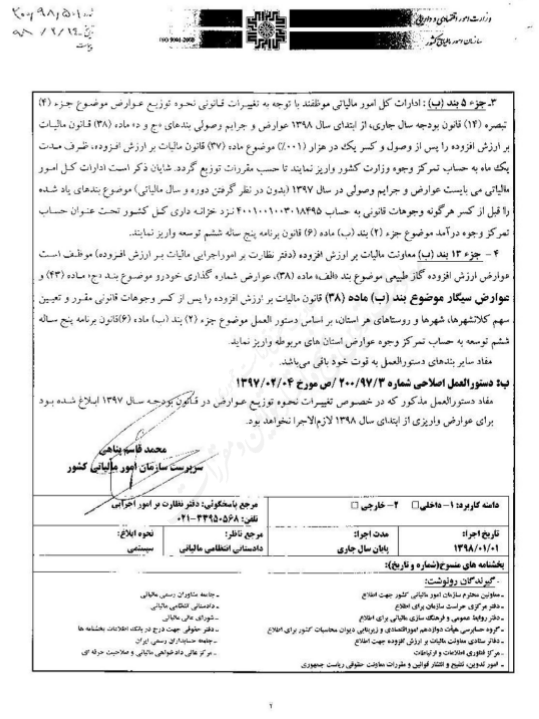 ۲۰۰/۹۸/۵۰۱
۹۸/۲/۱۴
وزارت امور اقتصادی و دارایی
سازمان امور مالیاتی کشور
۳ـ جزء ۵ بند (ب): ادارات کل امور مالیاتی موظفند با توجه به تغییرات قانونی نحوه توزیع عوارض موضوع جزء (۴)
تبصره (۱۴) قانون بودجه سال جاری، از ابتدای سال ۱۳۹۸ عوارض و جرایم وصولی بندهای «ج و د» ماده (۳۸) قانون مالیات
بر ارزش افزوده را پس از وصول و کسر یک در هزار (۰۰۱٪) موضوع ماده (۳۷) قانون مالیات بر ارزش افزوده، ظرف مدت
یک ماه به حساب تمرکز وجوه وزارت کشور واریز نمایند تا حسب مقررات توزیع گردد. شایان ذکر است ادارات کل امور
مالیاتی می بایست عوارض و جرایم وصولی در سال ۱۳۹۷ (بدون در نظر گرفتن دوره و سال مالیاتی) موضوع بندهای یاد شده
را قبل از کسر هرگونه وجوهات قانونی به حساب ۴۰۰۱۰۰۱۰۰۳۰۱۸۴۹۵ نزد خزانه داری کل کشور تحت عنوان حساب
تمرکز وجوه درآمد موضوع جزء (۲) بند (ب) ماده (۶) قانون برنامه پنج ساله ششم توسعه واریز نمایند.
۴ - جزء ۱۳ بند (ب) معاونت مالیات بر ارزش افزوده (دفتر نظارت بر امور اجرایی مالیات بر ارزش افزوده) موظف است
عوارض ارزش افزوده گاز طبیعی موضوع بند «الف» ماده (۳۸)، عوارض شماره گذاری خودرو موضوع بند «ج» ماده (۴۳) و
عوارض سیگار موضوع بند (ب) ماده (۳۸) قانون مالیات بر ارزش افزوده را پس از کسر وجوهات قانونی مقرر و تعیین
سهم کلانشهرها، شهرها و روستاهای هر استان، بر اساس دستور العمل موضوع جزء (۲) بند (ب) ماده (۶)قانون برنامه پنج ساله
ششم توسعه به حساب تمرکز وجوه عوارض استان های مربوطه واریز نماید.
مفاد سایر بندهای دستورالعمل به قوت خود باقی می‌باشد.
ب: دستورالعمل اصلاحی شماره ۲۰۰/۹۷/۳/ص مورخ ۱۳۹۷/۰۲/۰۴
مفاد دستورالعمل مذکور که در خصوص تغییرات نحوه توزیع عوارض در قانون بودجه سال ۱۳۹۷ ابلاغ شده بود
برای عوارض واریزی از ابتدای سال ۱۳۹۸ لازم‌الاجرا نخواهد بود.
محمد قاسم پناهی
سرپرست سازمان امور مالیاتی کشور
دامنه کاربرد: ۱- داخلی □ ۲- خارجی □
مرجع پاسخگوئی: دفتر نظارت بر امور اجرایی
تلفن: ۳۳۹۵۰۵۶۸-۰۲۱
تاریخ اجرا: مدت اجرا: مرجع ناظر: نحوه ابلاغ:
۱۳۹۸/۰۱/۰۱ پایان سال جاری دادستانی انتظامی مالیاتی سیستمی
بخشنامه های منسوخ(شماره و تاریخ):
گیرندگان رونوشت:
ـ معاونین محترم سازمان امور مالیاتی کشور جهت اطلاع
ـ دفتر مرکزی حراست سازمان برای اطلاع
ـ دفتر روابط عمومی و فرهنگ سازی مالیاتی برای اطلاع
ـ گروه حسابرسی هیأت دوازدهم امور اقتصادی و زیربنایی دیوان محاسبات کشور برای اطلاع
ـ دفاتر ستادی معاونت مالیات بر ارزش افزوده جهت اطلاع
ـ مرکز فناوری اطلاعات و ارتباطات
ـ امور تدوین، تنقیح و انتشار قوانین و مقررات معاونت حقوقی ریاست جمهوری
ـ جامعه مشاوران رسمی مالیاتی
ـ دادستانی انتظامی مالیاتی
ـ شورای عالی مالیاتی
ـ دفتر حقوقی جهت درج در بانک اطلاعات بخشنامه ها
ـ جامعه حسابداران رسمی ایران
ـ مرکز عالی دادخواهی مالیاتی و صلاحیت حرفه ای
۲